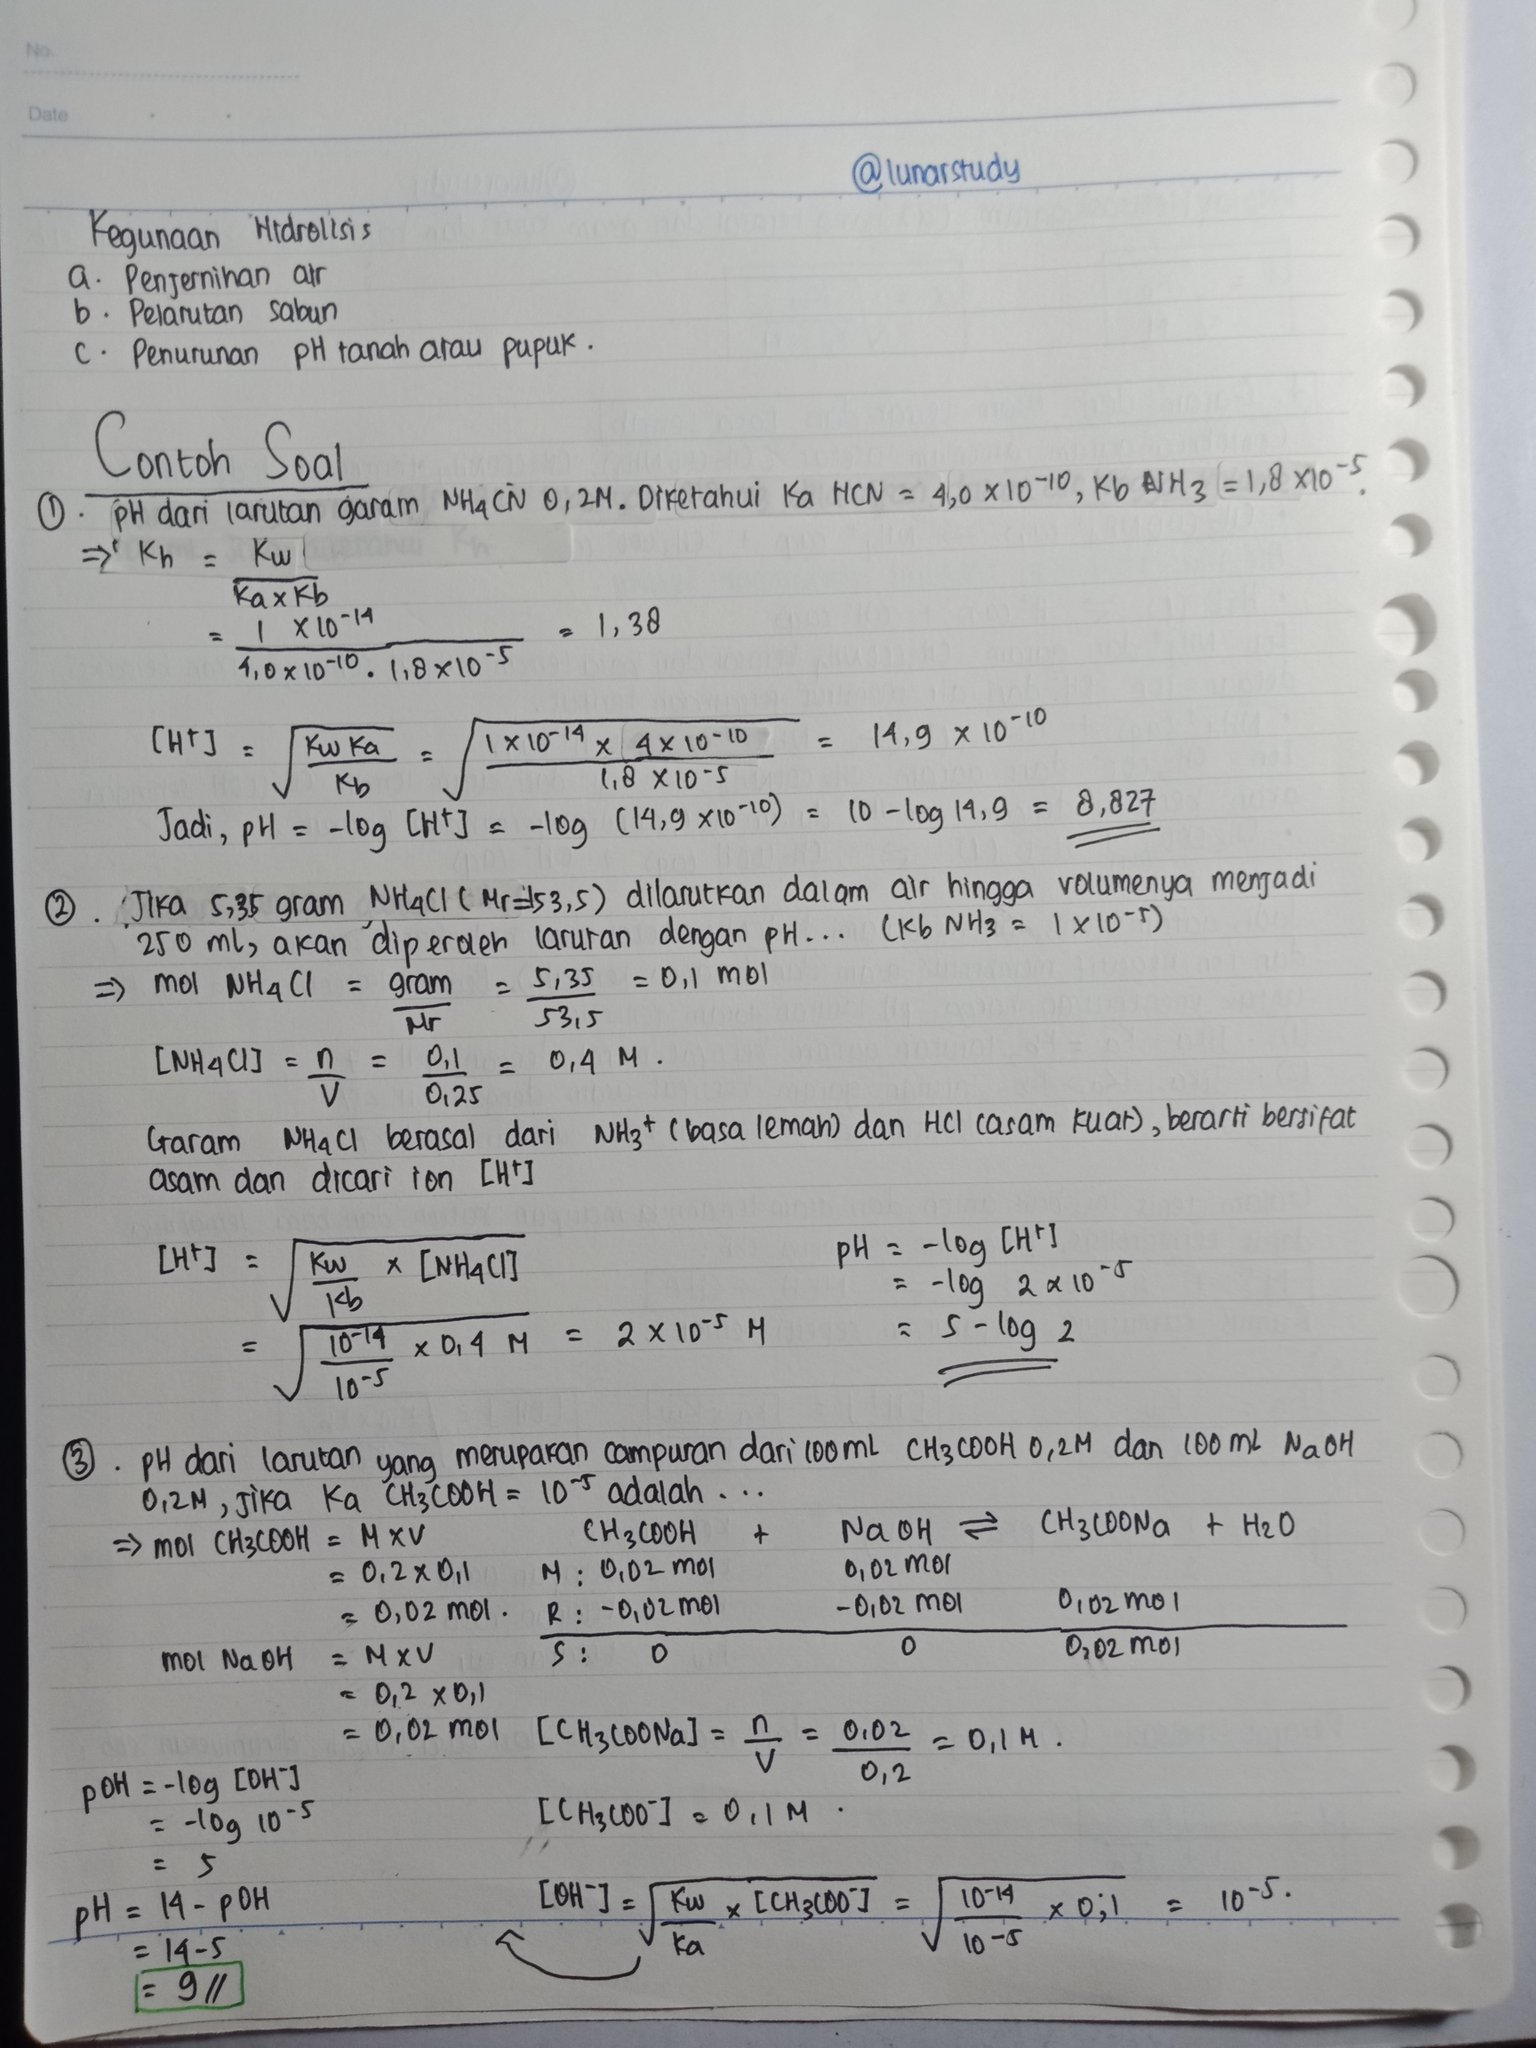 No.
Date
@lunarstudy
Kegunaan Hidrolisis
a. Penjernihan air
b. Pelarutan sabun
c. Penurunan pH tanah atau pupuk.
Contoh Soal
①. pH dari larutan garam NH4CN 0,2M. Diketahui Ka HCN = 4,0 x 10-10, Kb NH3 = 1,8 x 10-5.
=> Kh = Kw / Ka x Kb
= 1 x 10-14 / 4,0 x 10-10 . 1,8 x 10-5 = 1,38
[H+] = √(Kw Ka / Kb) = √(1 x 10-14 x 4 x 10-10 / 1,8 x 10-5) = 14,9 x 10-10
Jadi, pH = -log [H+] = -log (14,9 x 10-10) = 10 - log 14,9 = 8,827
②. Jika 5,35 gram NH4Cl (Mr = 53,5) dilarutkan dalam air hingga volumenya menjadi
250 ml, akan diperoleh larutan dengan pH... (Kb NH3 = 1 x 10-5)
=> mol NH4Cl = gram / Mr = 5,35 / 53,5 = 0,1 mol
[NH4Cl] = n / V = 0,1 / 0,25 = 0,4 M.
Garam NH4Cl berasal dari NH3+ (basa lemah) dan HCl (asam kuat), berarti bersifat
asam dan dicari ion [H+]
[H+] = √(Kw / Kb x [NH4Cl])
= √(10-14 / 10-5 x 0,4 M) = 2 x 10-5 M
pH = -log [H+]
= -log 2 x 10-5
= 5 - log 2
③. pH dari larutan yang merupakan campuran dari 100 mL CH3COOH 0,2M dan 100 mL NaOH
0,2M, jika Ka CH3COOH = 10-5 adalah ...
=> mol CH3COOH = M x V
= 0,2 x 0,1
= 0,02 mol.
mol NaOH = M x V
= 0,2 x 0,1
= 0,02 mol
CH3COOH + NaOH ⇌ CH3COONa + H2O
M : 0,02 mol 0,02 mol
R : -0,02 mol -0,02 mol 0,02 mol
S : 0 0 0,02 mol
[CH3COONa] = n / V = 0,02 / 0,2 = 0,1 M.
[CH3COO-] = 0,1 M.
[OH-] = √(Kw / Ka x [CH3COO-]) = √(10-14 / 10-5 x 0,1) = 10-5.
pOH = -log [OH-]
= -log 10-5
= 5
pH = 14 - pOH
= 14 - 5
= 9 //